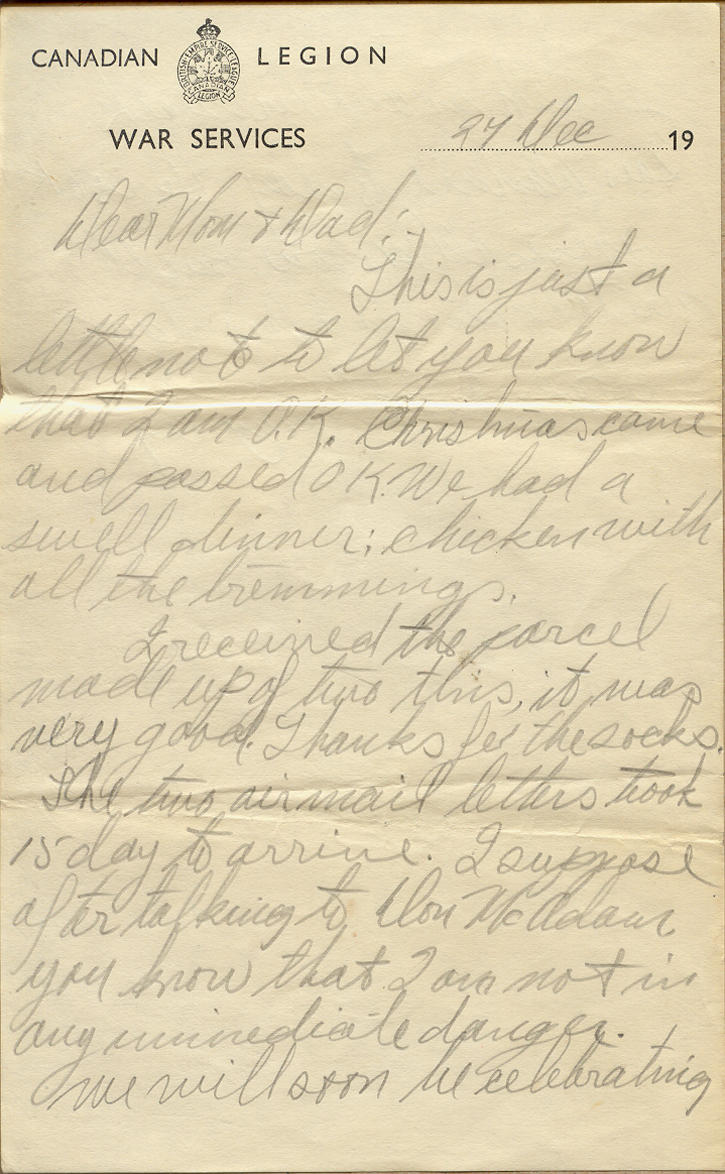 CANADIAN LEGION
BRITISH EMPIRE SERVICE LEAGUE
CANADIAN
LEGION
WAR SERVICES
27 Dec 19
Dear Mom & Dad:
This is just a
little not to to let you know
that I am O.K. Christmas came
and passed OK. We had a
swell dinner; chicken with
all the tremmings.
I received the parcel
made up of two this, it was
very good. Thanks for the socks.
The two air mail letters took
15 day to arrive. I suppose
after talking to Don McAdam
you know that I am not in
any immediate danger.
We will soon be celebrating